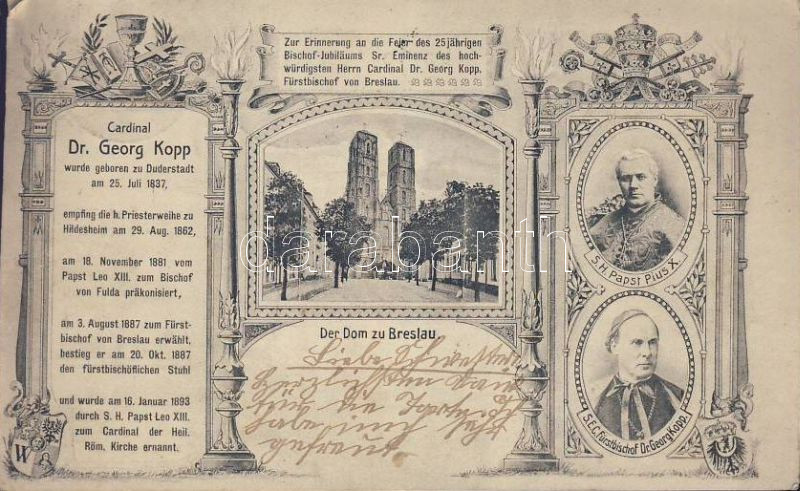 Cardinal
Dr. Georg Kopp
wurde geboren zu Duderstadt
am 25. Juli 1837,
empfing die h. Priesterweihe zu
Hildesheim am 29. Aug. 1862,
am 18. November 1881 vom
Papst Leo XIII. zum Bischof
von Fulda präkonisiert,
am 3. August 1887 zum Fürst-
bischof von Breslau erwählt,
bestieg er am 20. Okt. 1887
den fürstbischöflichen Stuhl
und wurde am 16. Januar 1893
durch S. H. Papst Leo XIII.
zum Cardinal der Heil.
Röm. Kirche ernannt.
W
Zur Erinnerung an die Feier des 25jährigen
Bischof-Jubiläums Sr. Eminenz des hoch-
würdigsten Herrn Cardinal Dr. Georg Kopp.
Fürstbischof von Breslau.
darabanth
Der Dom zu Breslau.
Liebe Schwester
Herzlichsten Dank
für die
habe mich sehr
gefreut.
S. H. Papst Pius X.
S.E.C. Fürstbischof Dr. Georg Kopp.